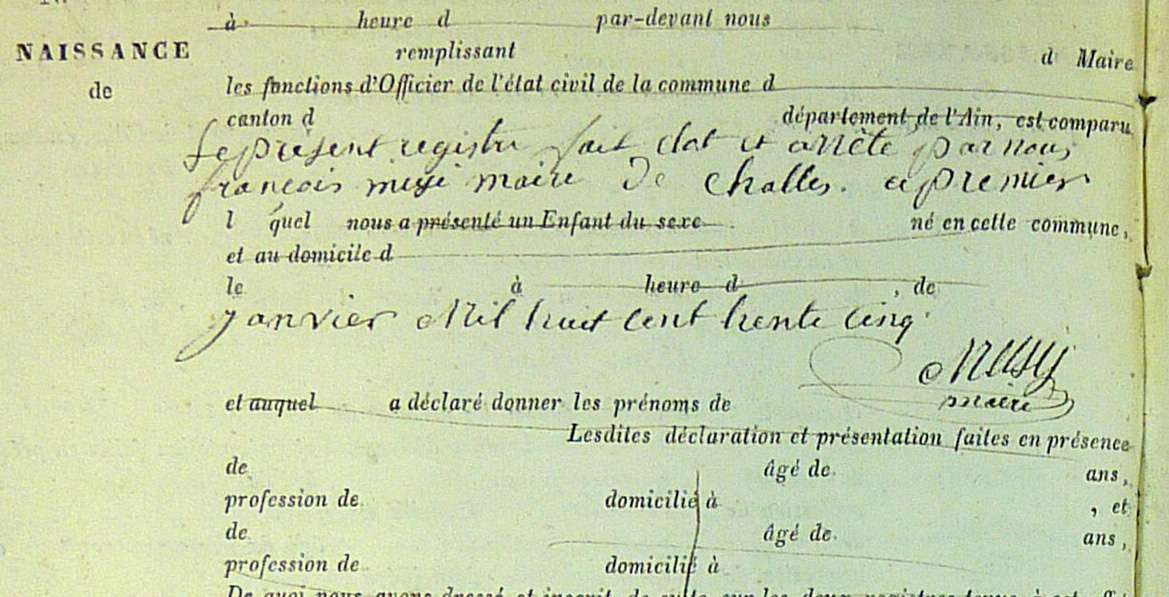 à heure d par-devant nous
NAISSANCE
remplissant d Maire
de
les fonctions d'Officier de l'état civil de la commune d
canton d département de l'Ain, est comparu
Le présent registre fait clot et arrête par nous
françois mizi maire De Challes. ce premier
l quel nous a présenté un Enfant du sexe né en cette commune,
et au domicile d
le à heure d , de
janvier Mil huit cent trente cinq
maire
et auquel a déclaré donner les prénoms de
Lesdites déclaration et présentation faites en présence
de âgé de ans,
profession de domicilié à , et
de âgé de ans,
profession de domicilié à
De quoi nous avons dressé et inscrit de suite sur les deux registres tenus à cet